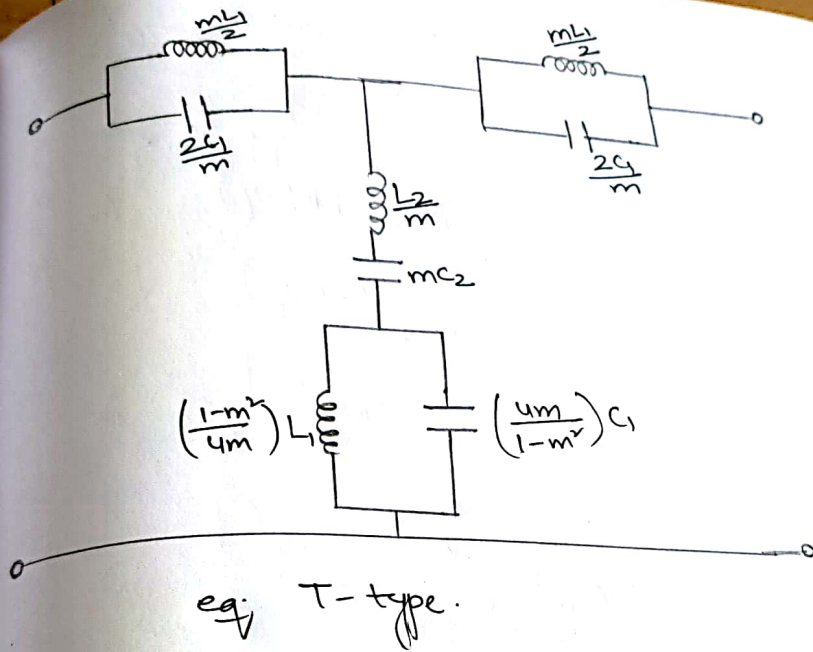 mL1/2
mL1/2
2C1/m
2C1/m
L2/m
mC2
((1-m²)/4m) L1
(4m/(1-m²)) C1
eq, T-type.